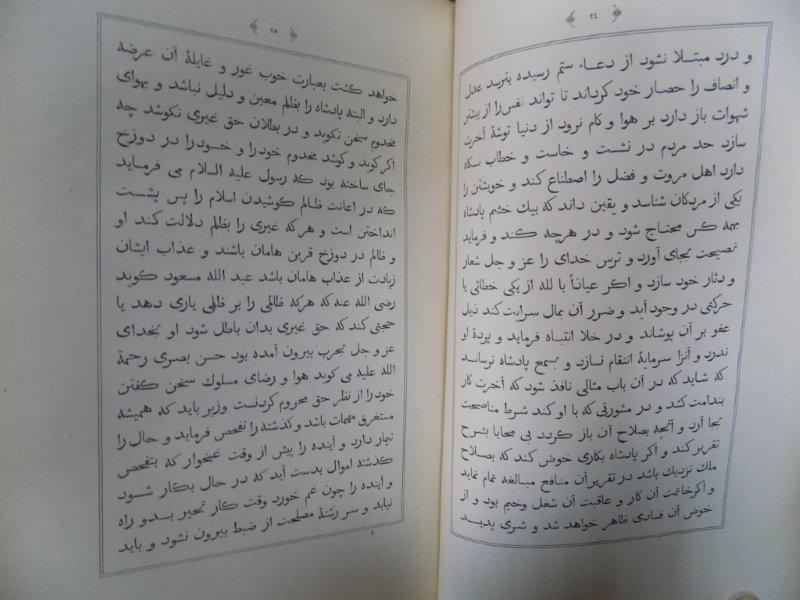 ٢٤
و درد مبتلا نشود از دعاء ستم رسیده بترسد عدل
و انصاف را حصار خود کرداند تا تواند نفس را از بیشتر
شهوات باز دارد بر هوا و کام نرود از دنیا توشهٔ آخرت
سازد حد مردم در نشست و خاست و خطاب نکاه
دارد اهل مروت و فضل را اصطناع کند و خویشتن را
یکی از مردکان شناسد و یقین داند که بیك خشم پادشاه
بهمه کس محتاج شود و در هرچه کند و فرماید
نصیحت بجای آورد و ترس خدای را عز و جل شعار
و دثار خود سازد و اکر عیاذاً با لله از یکی خطائی یا
حرکتی در وجود آید و ضرر آن بمال سرایت کند ذیل
عفو بر آن پوشاند و در خلا انتباه فرماید و پردهٔ او
ندرد و آنرا سرمایهٔ انتقام نسازد و بسمع پادشاه نرساند
که شاید که در آن باب مثالی نافذ شود که آخرت کار
بندامت کشد و در مشورتی که با او کند شرط مناصحت
بجا آرد و آنچه بصلاح آن باز کردد بی محابا بشرح
تقریر کند و اکر پادشاه بکاری خوض کند که بصلاح
ملك نزدیك باشد در تقریر آن منافع مبالغه تمام نماید
و اکر خاتمت آن کار و عاقبت آن شغل وخیم بود و از
خوض آن فسادی ظاهر خواهد شد و شری پدید
٢٥
خواهد کشت بعبارت خوب غور و غایلهٔ آن عرضه
دارد و البته پادشاه را بظلم معین و دلیل نباشد و بهوای
مخدوم سخن نکوید و در بطلان حق غیری نکوشد چه
اکر کوید و کوشد مخدوم خود را و خود را در دوزخ
جای ساخته بود که رسول علیه السلام می فرماید
که در اعانت ظالم کوشیدن اسلام را پس پشت
انداختن است و هرکه غیری را بظلم دلالت کند او
و ظالم در دوزخ قرین هامان باشند و عذاب ایشان
زیادت از عذاب هامان باشد عبد الله مسعود کوید
رضی الله عنه که هرکه ظالمی را بر ظلمی یاری دهد یا
حجتی کند که حق غیری بدان باطل شود او بخدای
عز و جل بحرب بیرون آمده بود حسن بصری رحمة
الله علیه می کوید هوا و رضای مسلوك سخن کفتن
خود را از نظر حق محروم کردنست وزیر باید که همیشه
مستغرق مهمات باشد و کذشته را تفحص فرماید و حال را
تیمار دارد و آینده را پیش از وقت غمخوار که بتفحص
کذشته اموال بدست آید که در حال بکار شود
و آینده را چون غم خورد وقت کار تحیر بدو راه
نیابد و سر رشتهٔ مصلحت از ضبط بیرون نشود و باید